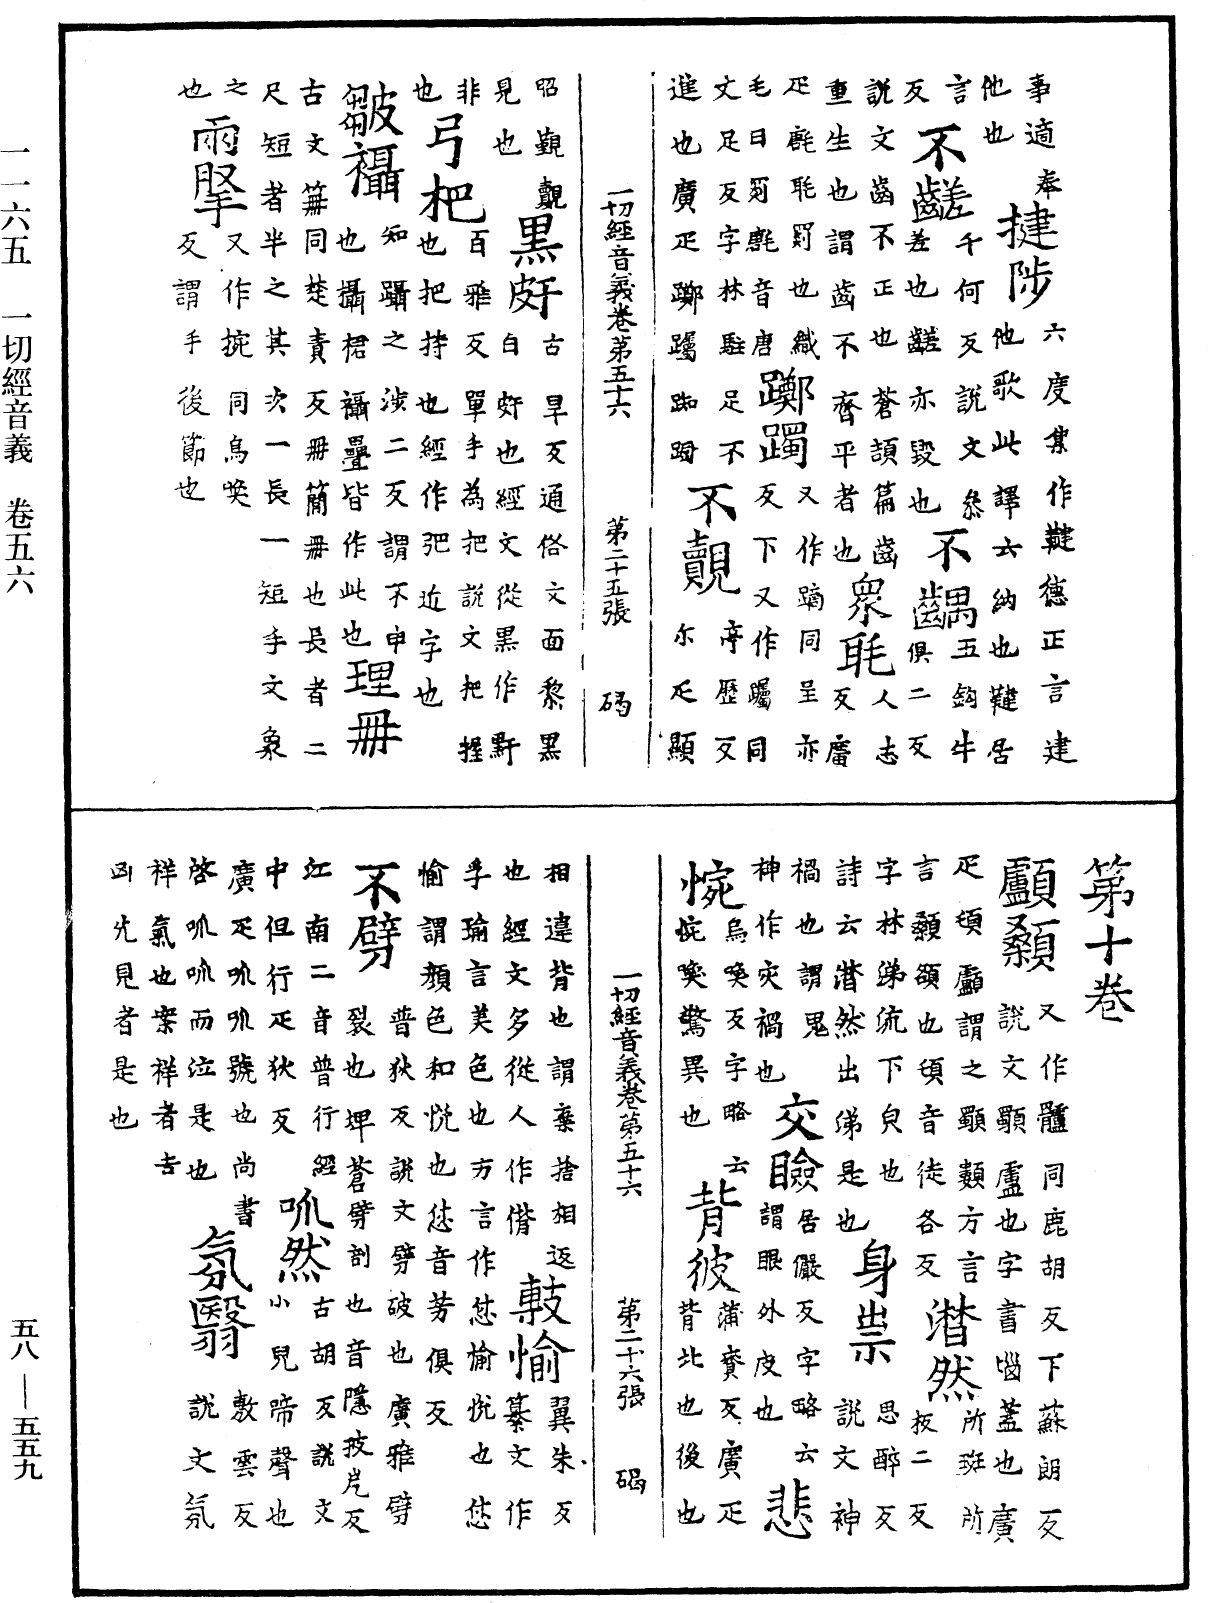 一一六五　一切經音義　卷五六
事適奉揵陟六度集作鞬德正言建
他也　他歌此譯云納也鞬居
言　不齹千何反說文參　不齵五鈎牛
反　差也齹亦毀也　俱二反
說文齒不正也蒼頡篇齒　人志
重生也謂齒不齊平者也眾毦反廣
疋毦毦罽也織　躑躅又作蹢同呈亦
毛曰罽毦音唐　反下又作躅同
文足反字林駐足不　不覿亭歷反
進也廣疋躑躅跢跦　尔疋顯
一切經音義卷第五十六　第二十五張　碣
昭覲覿　黑皯古旱反通俗文面黎黑
見也　白皯也經文從黑作黚
非　弓杷百雅反單手為把說文把握
也　也把持也經作弝近字也
皺襵知躡之涉二反謂不申　理冊
也攝裙襵疊皆作此也
古文笧同楚責反冊簡冊也長者二
尺短者半之其次一長一短手文象
之　兩掔又作捥同烏喚
也　反謂手後節也
第十卷
顱顙又作髗同鹿胡反下蘇朗反
說文顱也字書腦蓋也廣
疋頊顱謂之顱顙方言　潸然所班所
言顙額也頊音徒各反　板二反
字林涕流下皃也　身祟思醉反
詩云潸然出涕是也　說文神
禍也謂鬼　交瞼居儼反字略云
神作灾禍也　謂眼外皮也　悲
惋烏喚反字略云　背彼蒲賚反廣疋
惋喚驚異也　背北也後也
一切經音義卷第五十六　第二十六張　碣
相違背也謂棄捨相返　㪇愉翼朱反
也經文多從人作偝　纂文作
孚瑜言美色也方言作怤愉悅也怤
愉謂顏色和悅也怤音芳俱反
不劈普狄反說文劈破也廣雅劈
裂也埤蒼劈剖也音隱披厄反
江南二音普行經　呱然古胡反說文
中但行疋狄反　小兒啼聲也
廣疋呱呱號也尚書　氛翳敷雲反
啓呱呱而泣是也　說文氛
祥氣也案祥者吉
凶先見者是也
五八—五五九